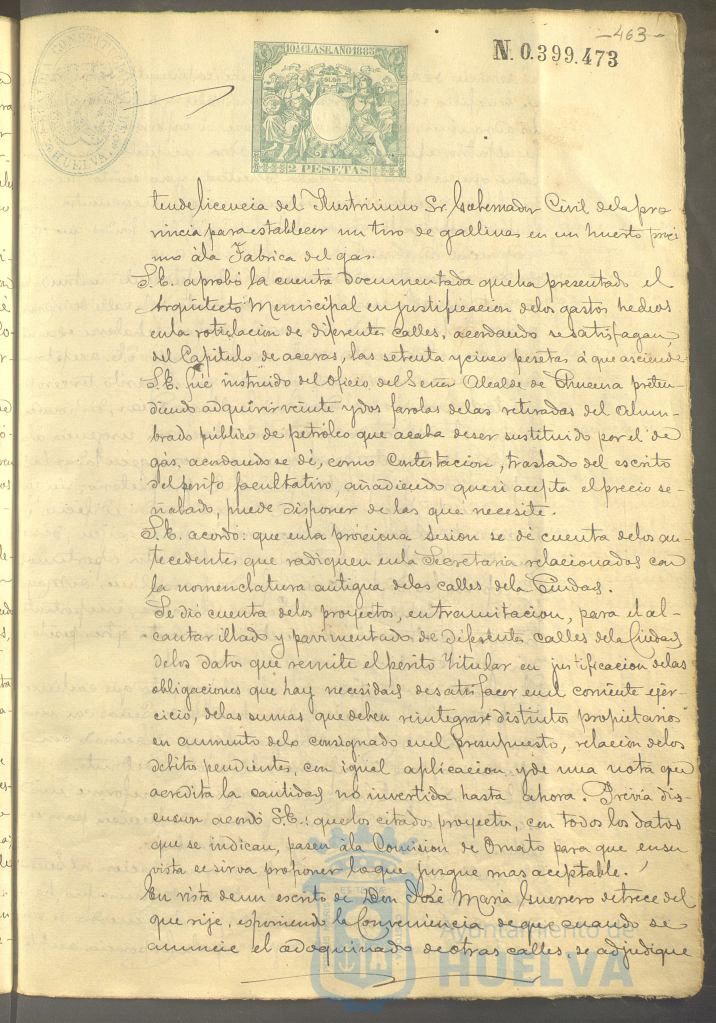 -463-
N. 0.399.473
ALCALDIA CONSTITUCIONAL
HUELVA
10ª CLASE. AÑO 1885
2 PESETAS
tende licencia del Ilustrisimo Sr. Gobernador Civil dela pro-
vincia para establecer un tiro de gallinas en un huerto próxi
mo ála Fabrica del gas.
S.E. aprobó la cuenta documentada queha presentado el
Arquitecto Municipal en justificacion delos gastos hechos
enla rotulacion de diferentes calles, acordando se satisfagan,
del Capitulo de aceras, las setenta ycinco pesetas á que asciende
S.E. fué instruido del oficio del Señor Alcalde de preten-
diendo adquirir veinte ydos farolas delas retiradas del alum-
brado público de petróleo que acaba deser sustituido por el de
gas. acordando se dé, como Contestacion, traslado del escrito
del perito facultativo, añadiendo quesi acepta el precio se-
ñalado, puede disponer de las que necesite.
S.E. acordó: que enla próxima sesion se dé cuenta delos an-
tecedentes que radiquen enla Secretaria relacionados con
la nomenclatura antigua delas calles dela Ciudad.
Se dió cuenta delos proyectos, en tramitacion, para el al-
cantarillado y pavimentado de diferentes calles dela Ciudad,
delos datos que remite el périto titular en justificacion delas
obligaciones que hay necesidad desatisfacer enel corriente ejer-
cicio, delas sumas que deben reintegrar distintos propietarios
en aumento delo consignado enel presupuesto, relacion delos
débitos pendientes, con igual aplicacion y de una nota que
acredita la cantidad no invertida hasta ahora. Prévia dis-
cusion acordó S.E.: quelos citado proyectos, con todos los datos
que se indican, pasen ála Comision de Ornato para que ensu
vista se sirva proponer loque juzgue mas aceptable.
En vista deun escrito de Don José Maria Guerrero detrece del
que rije, esponiendo la Conveniencia deque cuando se
anuncie el adoquinado deotras calles, se adjudique
Ayuntamiento de
HUELVA